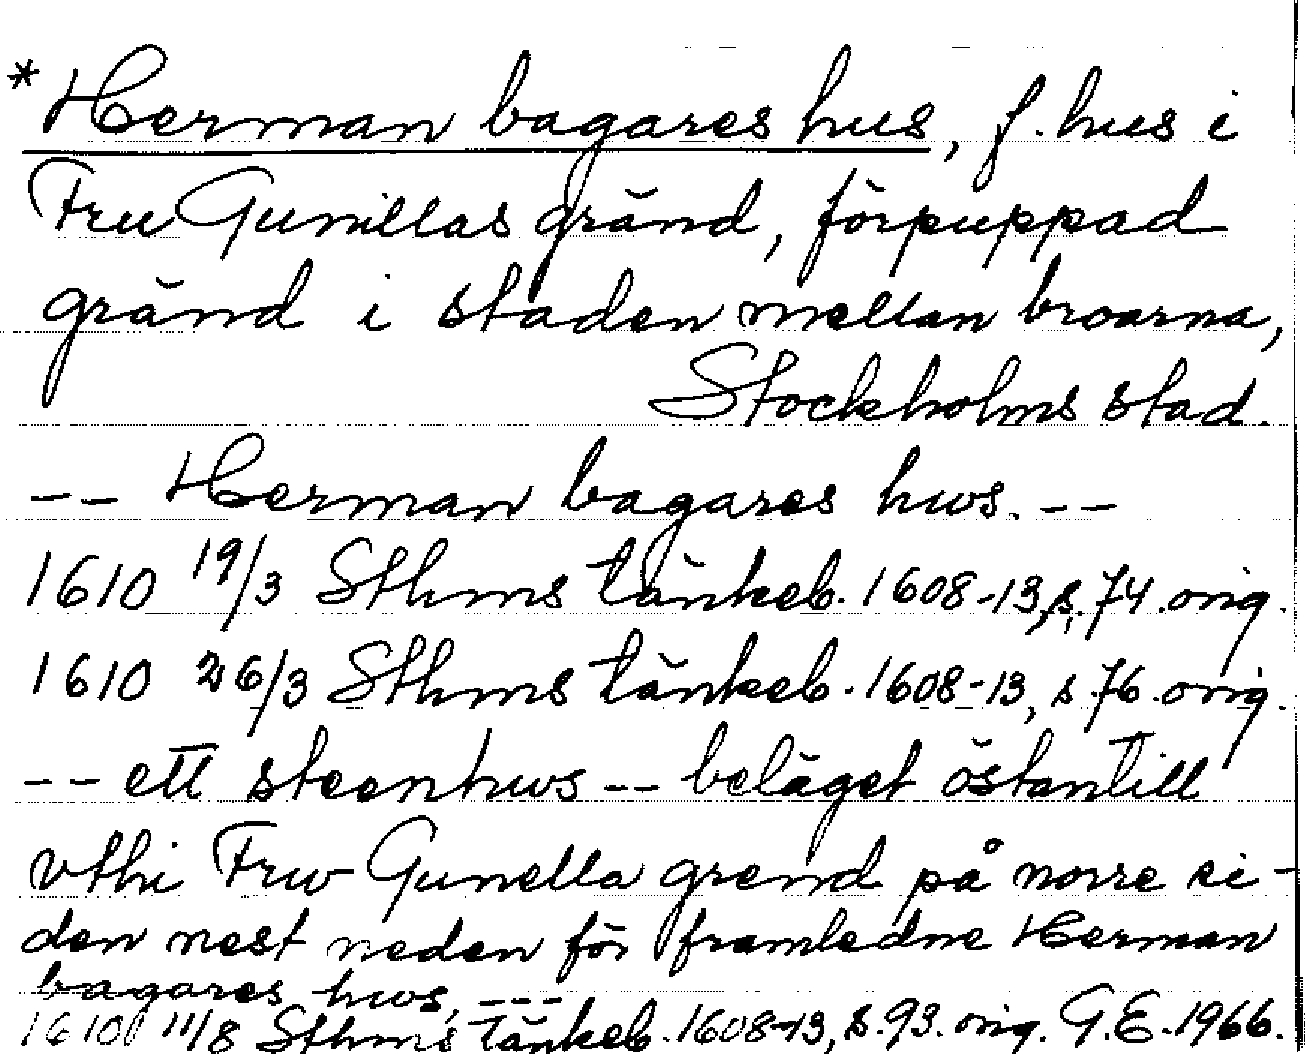 * Herman bagares hus, f. hus i
Fru Gunillas gränd, förpuppad
gränd i staden mellan broarna,
Stockholms stad.
-- Herman bagares hws. --
1610 19/3 Sthms tänkeb. 1608-13, s. 74. orig.
1610 26/3 Sthms tänkeb. 1608-13, s. 76. orig.
-- ett steenhws -- beläget östantill
vthi Frw Gunella grend på norre si-
den nest neden för framledne Herman
bagares hws, ---
1610 11/8 Sthms tänkeb. 1608-13, s. 93. orig. G.E. 1966.